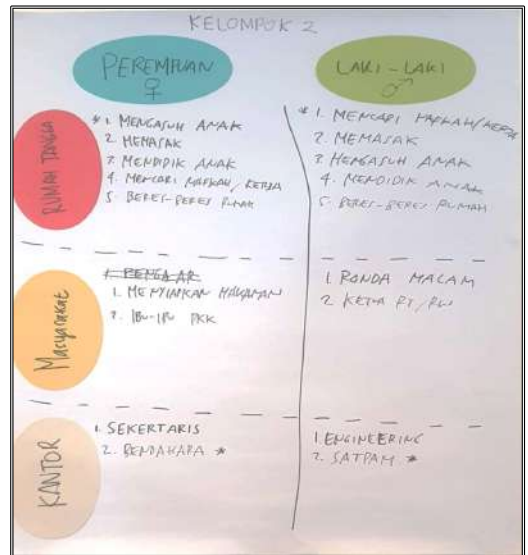 KELOMPOK 2
PEREMPUAN
♀
LAKI-LAKI
♂
RUMAH TANGGA
* 1. MENGASUH ANAK
2. MEMASAK
3. MENDIDIK ANAK
4. MENCARI NAFKAH/KERJA
5. BERES-BERES RUMAH
* 1. MENCARI NAFKAH/KERJA
2. MEMASAK
3. MENGASUH ANAK
4. MENDIDIK ANAK
5. BERES-BERES RUMAH
Masyarakat
1. MENYIAPKAN MAKANAN
2. IBU-IBU PKK
1. RONDA MALAM
2. KETUA RT/RW
KANTOR
1. SEKERTARIS
2. BENDAHARA *
1. ENGINEERING
2. SATPAM *